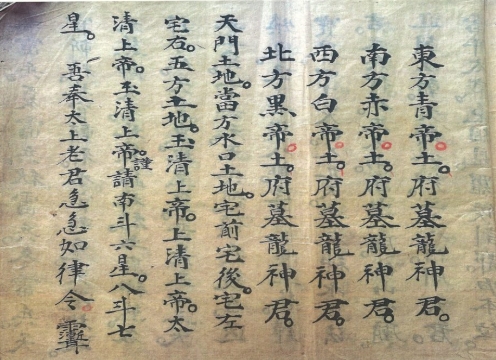 東方青帝土府墓龍神君。
南方赤帝土府墓龍神君。
西方白帝土府墓龍神君。
北方黑帝土府墓龍神君。
天門土地。當方水口土地。宅前宅後。宅左
宅右。五方土地。玉清上帝。上清上帝。太
清上帝。玉清上帝。證請南斗六星。八斗七
星。吾奉太上老君急急如律令。